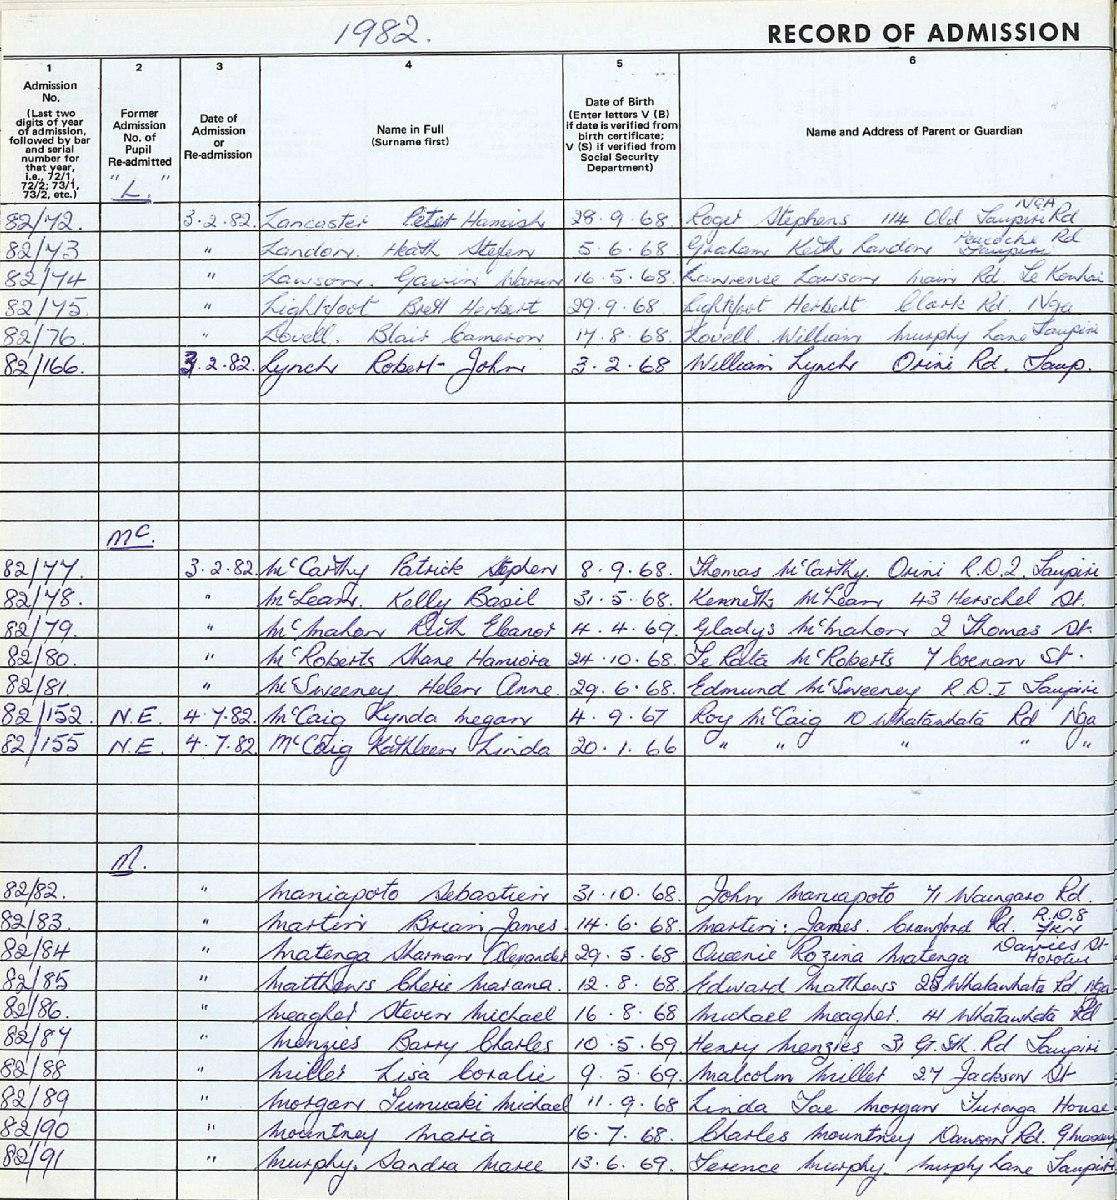 1982.
RECORD OF ADMISSION
1
2
3
4
5
6
Admission
No.
(Last two
digits of year
of admission,
followed by bar
and serial
number for
that year,
i.e., 72/1,
72/2; 73/1,
73/2, etc.)
Former
Admission
No. of
Pupil
Re-admitted
Date of
Admission
or
Re-admission
Name in Full
(Surname first)
Date of Birth
(Enter letters V (B)
if date is verified from
birth certificate;
V (S) if verified from
Social Security
Department)
Name and Address of Parent or Guardian
"L."
82/72. 3.2.82. Lancaster Peter Hamish 28.9.68 Roger Stephens 114 Old Taupiri Rd NGA
82/73 " Landon. Heath Stefen 5.6.68 Graham Keith Landon Peacocke Rd Taupiri
82/74 " Lawson. Gavin 16.5.68. Lawrence Lawson main Rd. Te Kowhai
82/75 " Lightfoot Brett Herbert 29.9.68 Lightfoot Herbert Clark Rd. Nga
82/76 " Lovell. Blair Cameron 17.8.68 Lovell. William Murphy Lane Taupiri
82/166. 3.2.82. Lynch Robert John 3.2.68 William Lynch Orini Rd. Taup.
Mc.
82/77. 3.2.82. McCarthy Patrick Stephen 8.9.68. Thomas McCarthy. Orini R.D.2. Taupiri
82/78. " McLean. Kelly Basil 31.5.68. Kenneth McLean 43 Herschel St.
82/79. " McMahon Ruth Eleanor 4.4.69. Gladys McMahon 2 Thomas St.
82/80. " McRoberts Shane Hamiora 24.10.68. Te Rata McRoberts 7 St.
82/81. " McSweeney Helen Anne. 29.6.68. Edmund McSweeney R.D.I Taupiri
82/152. N.E. 4.7.82. McCaig Lynda Megan 4.9.67 Roy McCaig 10 Whatawhata Rd Nga
82/155 N.E. 4.7.82. McCaig Kathleen Linda 20.1.66 " " " " "
M.
82/82. " Maniapoto Sebastien 31.10.68. John Maniapoto 71 Waingaro Rd.
82/83 " Martin Brian James 14.6.68. Martin: James. Crawford Rd. R.D.8
82/84 " Matenga Sharman Alexander 29.5.68 Queenie Rozina Matenga Davies St Horotiu
82/85 " Matthews Cherie Marama. 12.8.68. Edward Matthews 28 Whatawhata Rd. Nga
82/86. " Meagher Steven Michael 16.8.68 Michael Meagher. 141 Whatawhata Rd
82/87 " Menzies Barry Charles 10.5.69. Henry Menzies 31 Gt. Sth Rd Taupiri
82/88 " Miller Lisa Coralie 9.5.69. Malcolm Miller 27 Jackson St
82/89 " Morgan Tumuaki Michael 11.9.68 Linda Tae Morgan Turonga House
82/90 " Mountney Maria 16.7.68. Charles Mountney Dawson Rd.
82/91 " Murphy. Sandra Maree 13.6.69. Terence Murphy. Murphy Lane Taupiri